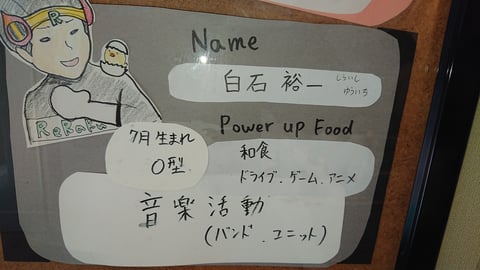 R
ReRaku
Name
白石 裕一
しらいし
ゆういち
7月生まれ
O型
Power up Food
和食
ドライブ.ゲーム.アニメ
音楽活動
(バンド.ユニット)